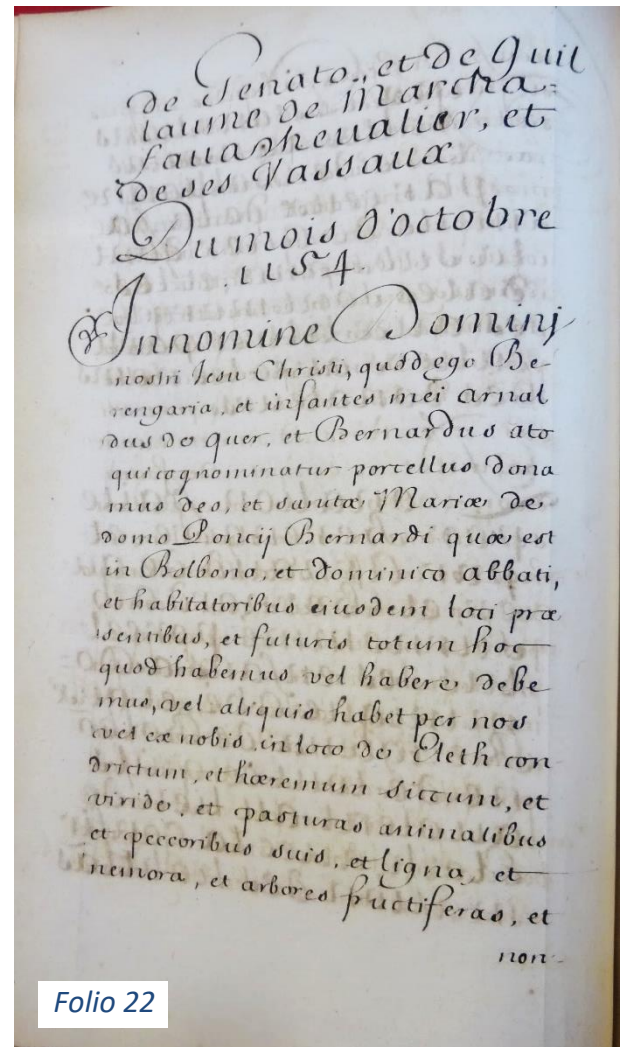 de Senato, et de Guil
laume de Marcha=
faua chevalier, et
de ses Vassaux
Du mois d'octobre
.1154.
In nomine Dominj
nostri Iesu Christi, quod ego Be-
rengaria, et infantes mei arnal
dus de quer, et Bernardus ato
qui cognominatur porcellus dona
mus deo, et sanctæ Mariæ de
domo Poncij Bernardi quæ est
in Bolbona, et dominico abbati,
et habitatoribus eiusdem loci præ
sentibus, et futuris totum hoc
quod habemus vel habere debe
mus, vel aliquis habet per nos
vel ex nobis in loco de Eleth con
drictum, et hæremum siccum, et
viride, et pasturas animalibus
et peccoribus suis, et ligna, et
nemora, et arbores fructiferas, et
non-
Folio 22